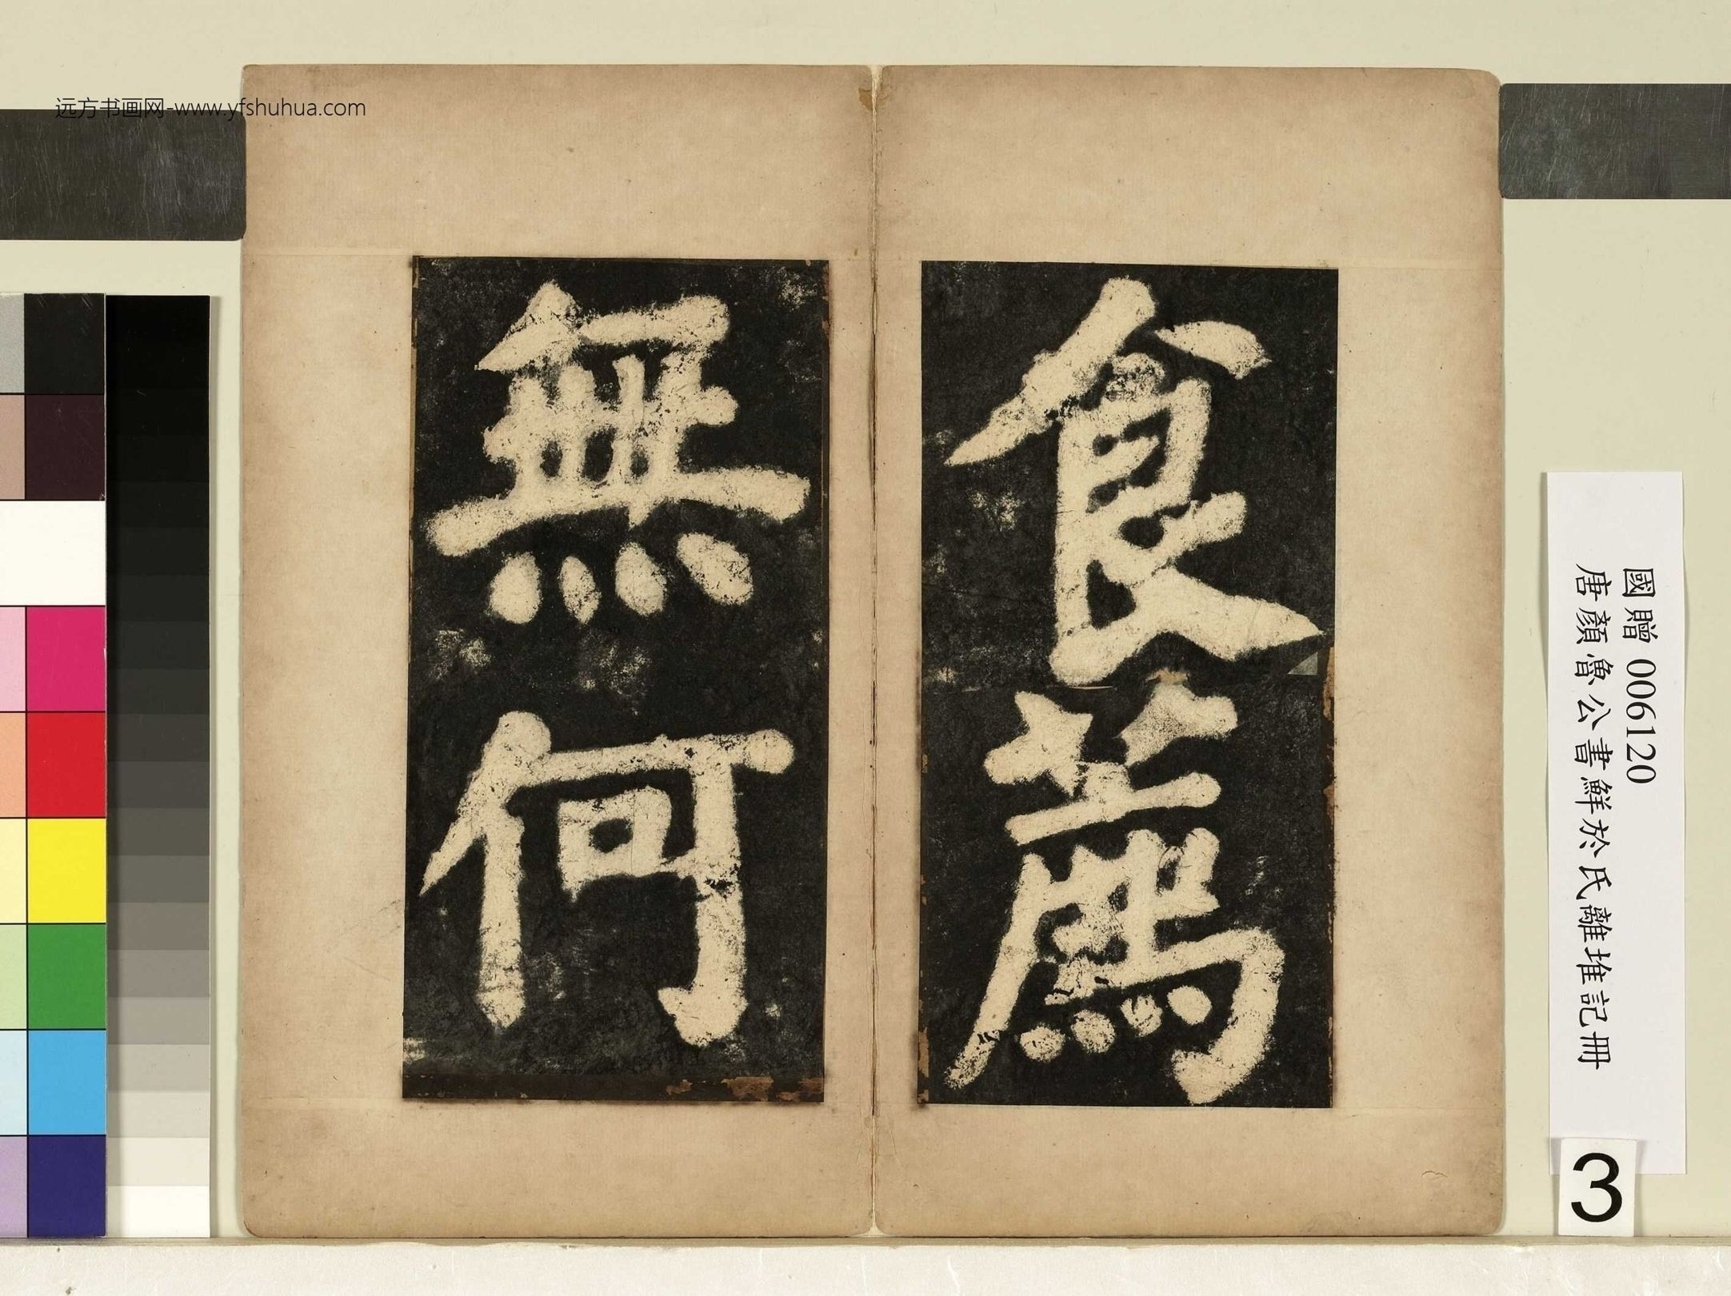 远方书画网-www.yfshuhua.com
食薦
無何
國贈 006120
唐顏魯公書鮮於氏離堆記冊
3